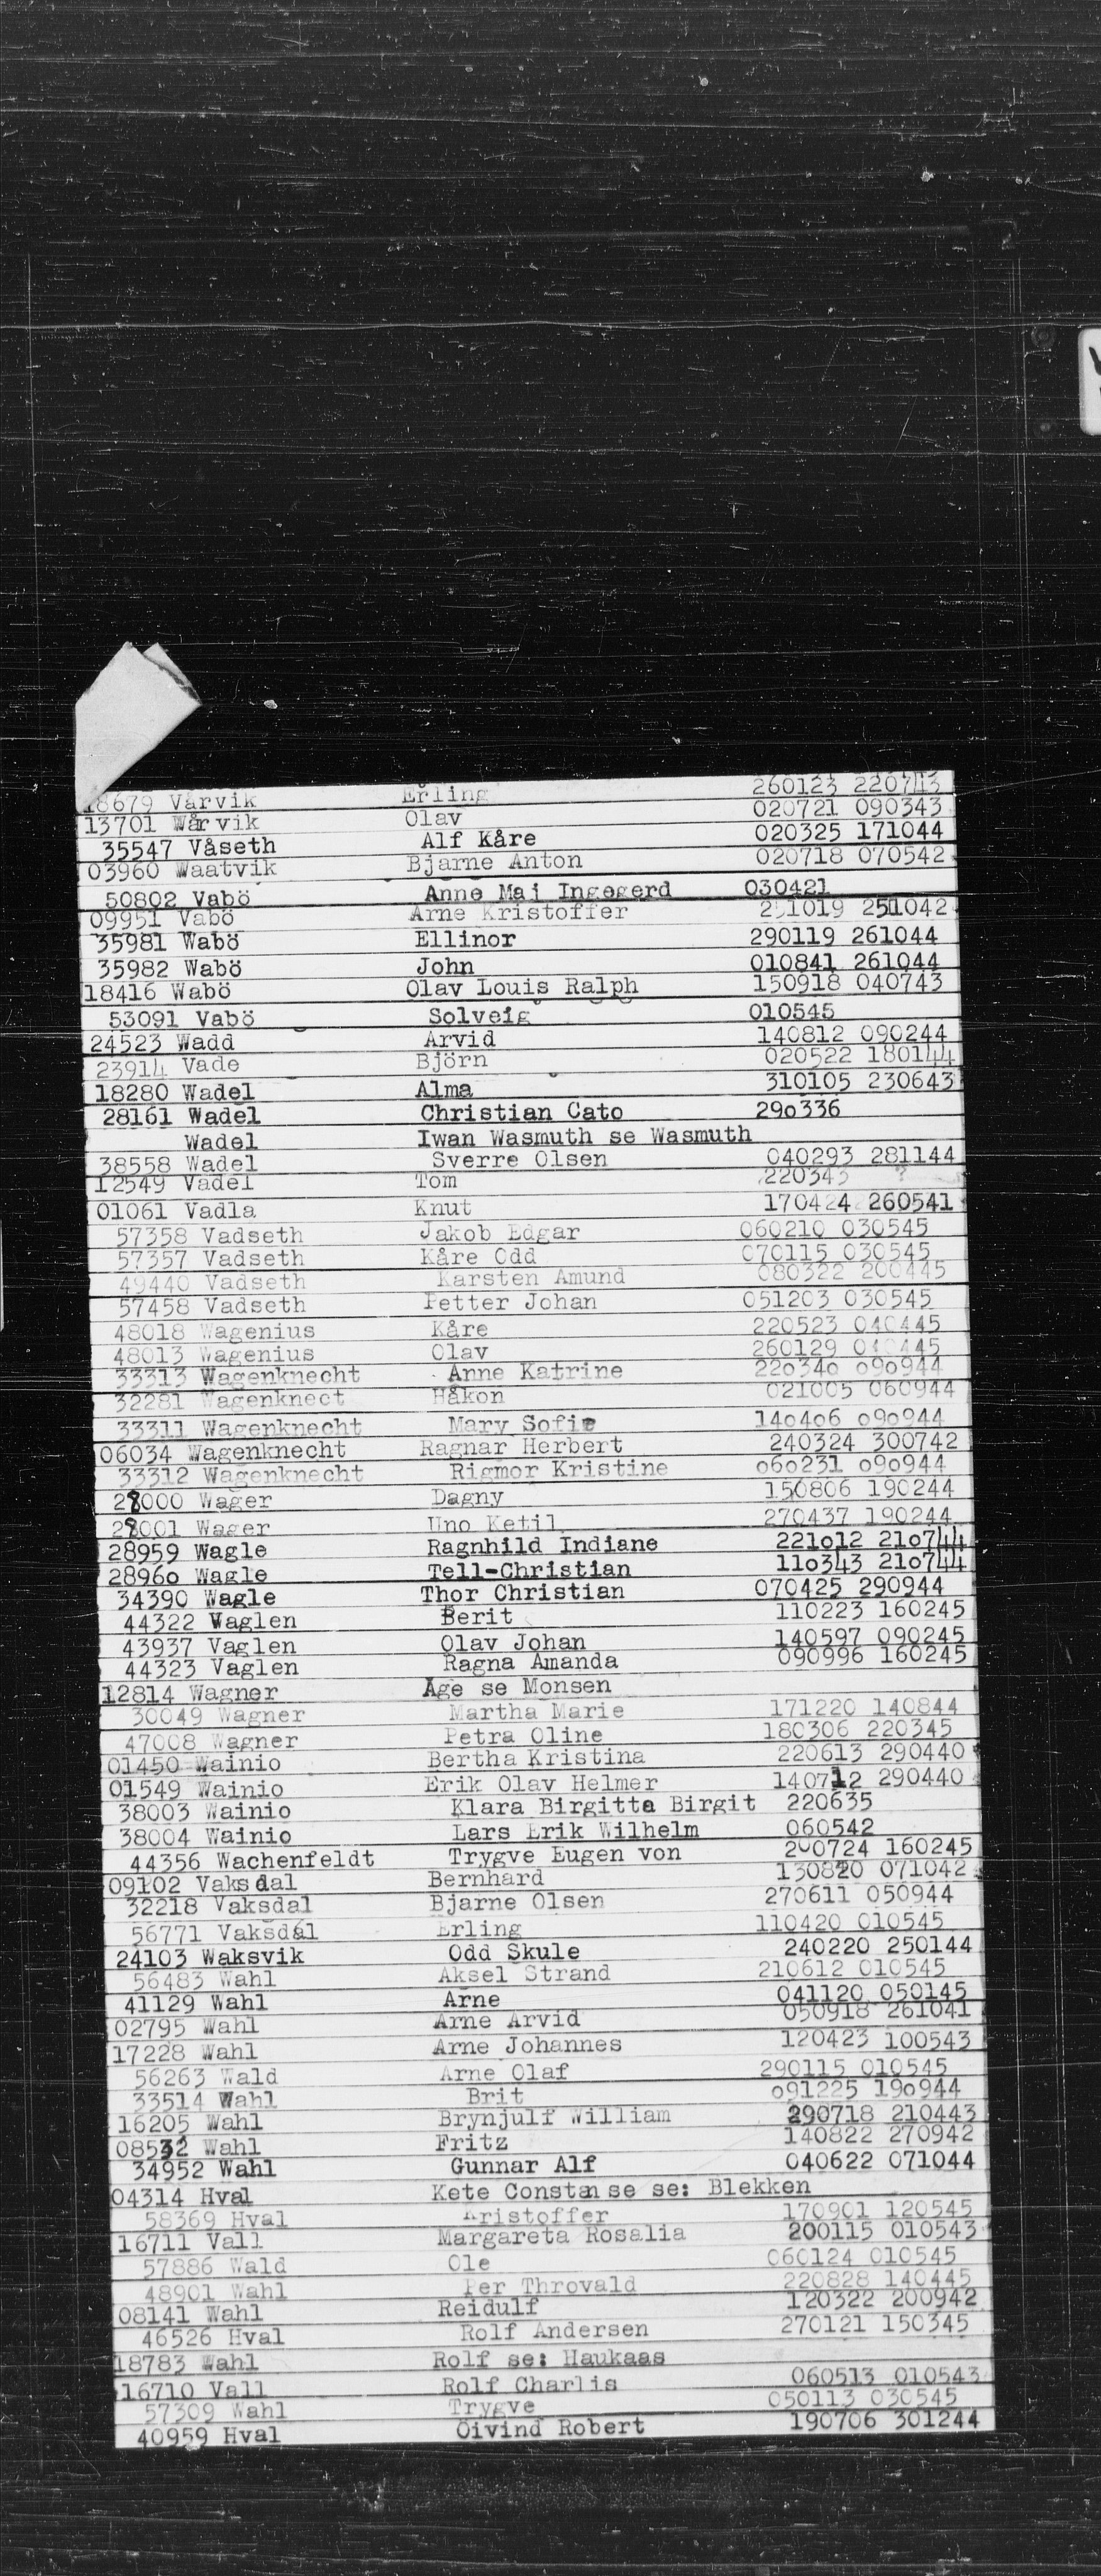 18679 Vårvik Erling 260123 220743
13701 Wårvik Olav 020721 090343
35547 Våseth Alf Kåre 020325 171044
03960 Waatvik Bjarne Anton 020718 070542
50802 Vabö Anne Maj Ingegerd 030421
09951 Vabö Arne Kristoffer 251042
35981 Wabö Ellinor 290119 261044
35982 Wabö John 010841 261044
18416 Wabö Olav Louis Ralph 150918 040743
53091 Vabö Solveig 010545
24523 Wadd Arvid 140812 090244
23914 Vade Björn 020522 180144
18280 Wadel Alma 310105 230643
28161 Wadel Christian Cato 290336
Wadel Iwan Wasmuth se Wasmuth
38558 Wadel Sverre Olsen 040293 281144
12549 Vadel Tom 220343 ?
01061 Vadla Knut 170424 260541
57358 Vadseth Jakob Edgar 060210 030545
57357 Vadseth Kåre Odd 070115 030545
49440 Vadseth Karsten Amund 080322 200445
57458 Vadseth Petter Johan 051203 030545
48018 Wagenius Kåre 220523 040445
48013 Wagenius Olav 260129 040445
33313 Wagenknecht Anne Katrine 220340 090944
32281 Wagenknect Håkon 021005 060944
33311 Wagenknecht Mary Sofie 140406 090944
06034 Wagenknecht Ragnar Herbert 240324 300742
33312 Wagenknecht Rigmor Kristine 060231 090944
28000 Wager Dagny 150806 190244
28001 Wager Uno Ketil 270437 190244
28959 Wagle Ragnhild Indiane 221012 210744
28960 Wagle Tell-Christian 110343 210744
34390 Wagle Thor Christian 070425 290944
44322 Vaglen Berit 110223 160245
43937 Vaglen Olav Johan 140597 090245
44323 Vaglen Ragna Amanda 090996 160245
12814 Wagner Åge se Monsen
30049 Wagner Martha Marie 171220 140844
47008 Wagner Petra Oline 180306 220345
01450 Wainio Bertha Kristina 220613 290440
01549 Wainio Erik Olav Helmer 140712 290440
38003 Wainio Klara Birgitta Birgit 220635
38004 Wainio Lars Erik Wilhelm 060542
44356 Wachenfeldt Trygve Eugen von 200724 160245
09102 Vaksdal Bernhard 130820 071042
32218 Vaksdal Bjarne Olsen 270611 050944
56771 Vaksdal Erling 110420 010545
24103 Waksvik Odd Skule 240220 250144
56483 Wahl Aksel Strand 210612 010545
41129 Wahl Arne 041120 050145
02795 Wahl Arne Arvid 050918 261041
17228 Wahl Arne Johannes 120423 100543
56263 Wald Arne Olaf 290115 010545
33514 Wahl Brit 091225 190944
16205 Wahl Brynjulf William 290718 210443
08532 Wahl Fritz 140822 270942
34952 Wahl Gunnar Alf 040622 071044
04314 Hval Kete Constanse se: Blekken
58369 Hval Kristoffer 170901 120545
16711 Vall Margareta Rosalia 200115 010543
57886 Wald Ole 060124 010545
48901 Wahl Per Throvald 220828 140445
08141 Wahl Reidulf 120322 200942
46526 Hval Rolf Andersen 270121 150345
18783 Wahl Rolf se: Haukaas
16710 Vall Rolf Charlis 060513 010543
57309 Wahl Trygve 050113 030545
40959 Hval Öivind Robert 190706 301244